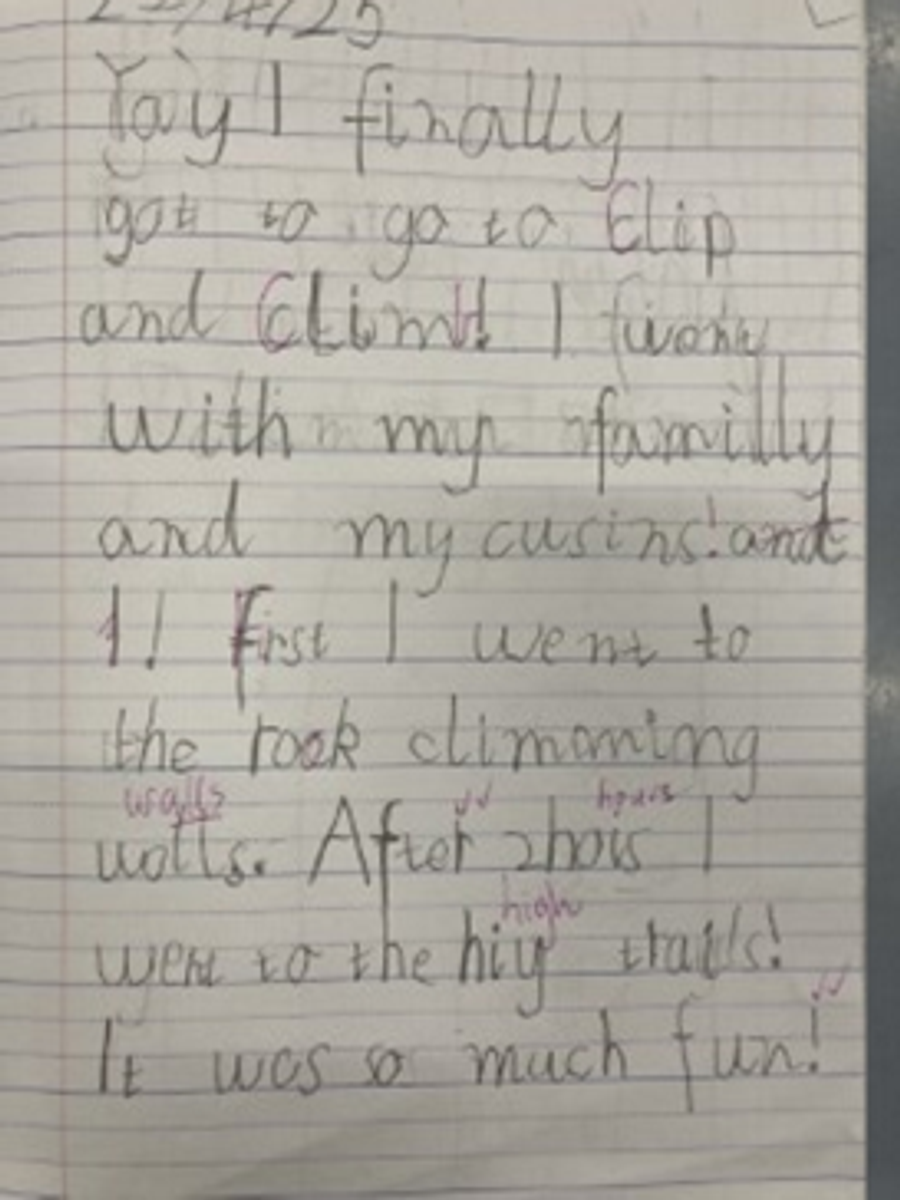 /4/25
Yay I finally
got to go to Clip
and Climb! I
with my familly
and my cusins! and
1! First I went to
the rock climoming
walls hours
wolls. After 2 hows I
high
went to the hiy trails!
It was so much fun!